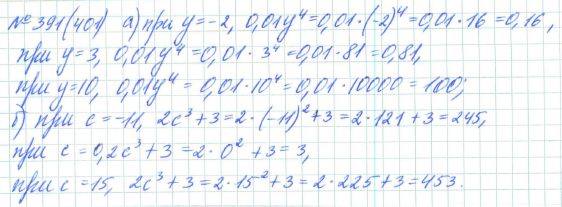 № 391(401) а) при y = -2, 0,01y⁴ = 0,01 · (-2)⁴ = 0,01 · 16 = 0,16,
при y = 3, 0,01y⁴ = 0,01 · 3⁴ = 0,01 · 81 = 0,81,
при y = 10, 0,01y⁴ = 0,01 · 10⁴ = 0,01 · 10000 = 100;
б) при c = -11, 2c³ + 3 = 2 · (-11)² + 3 = 2 · 121 + 3 = 245,
при c = 0, 2c³ + 3 = 2 · 0² + 3 = 3,
при c = 15, 2c³ + 3 = 2 · 15² + 3 = 2 · 225 + 3 = 453.